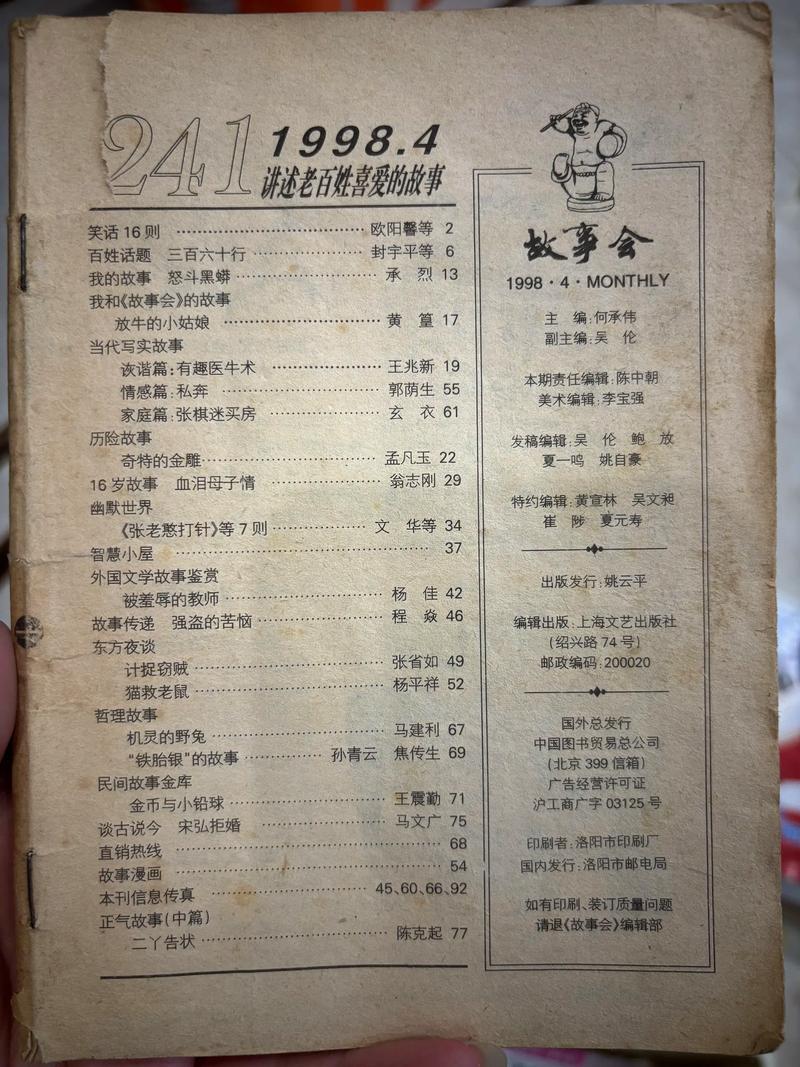 241
1998.4
讲述老百姓喜爱的故事
笑话16则 欧阳馨等 2
百姓话题 三百六十行 封宇平等 6
我的故事 怒斗黑蟒 承 烈 13
我和《故事会》的故事
放牛的小姑娘 黄 篁 17
当代写实故事
诙谐篇:有趣医牛术 王兆新 19
情感篇:私奔 郭荫生 55
家庭篇:张棋迷买房 玄 衣 61
历险故事
奇特的金雕 孟凡玉 22
16岁故事 血泪母子情 翁志刚 29
幽默世界
《张老憨打针》等7则 文 华等 34
智慧小屋 37
外国文学故事鉴赏
被羞辱的教师 杨 佳 42
故事传递 强盗的苦恼 程 焱 46
东方夜谈
计捉窃贼 张省如 49
猫救老鼠 杨平祥 52
哲理故事
机灵的野兔 马建利 67
“铁胎银”的故事 孙青云 焦传生 69
民间故事金库
金币与小铅球 王震勤 71
谈古说今 宋弘拒婚 马文广 75
直销热线 68
故事漫画 54
本刊信息传真 45、60、66、92
正气故事(中篇)
二丫告状 陈克起 77
故事会
1998·4·MONTHLY
主 编:何承伟
副主编:吴 伦
本期责任编辑:陈中朝
美术编辑:李宝强
发稿编辑:吴 伦 鲍 放
夏一鸣 姚自豪
特约编辑:黄宣林 吴文昶
崔 陟 夏元寿
出版发行:姚云平
编辑出版:上海文艺出版社
(绍兴路74号)
邮政编码:200020
国外总发行
中国图书贸易总公司
(北京399信箱)
广告经营许可证
沪工商广字03125号
印刷者:洛阳市印刷厂
国内发行:洛阳市邮电局
如有印刷、装订质量问题
请退《故事会》编辑部